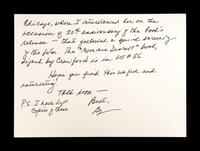 Chicago, where I interviewed her on the
occasion of 20th anniversary of the book's
release — that followed a special screening
of the film. The "Mommie Dearest" book,
signed by Crawford is in LOT # 86
Hope you find this useful and
interesting
Talk soon —
P.S. I have
Copies of these
Best,